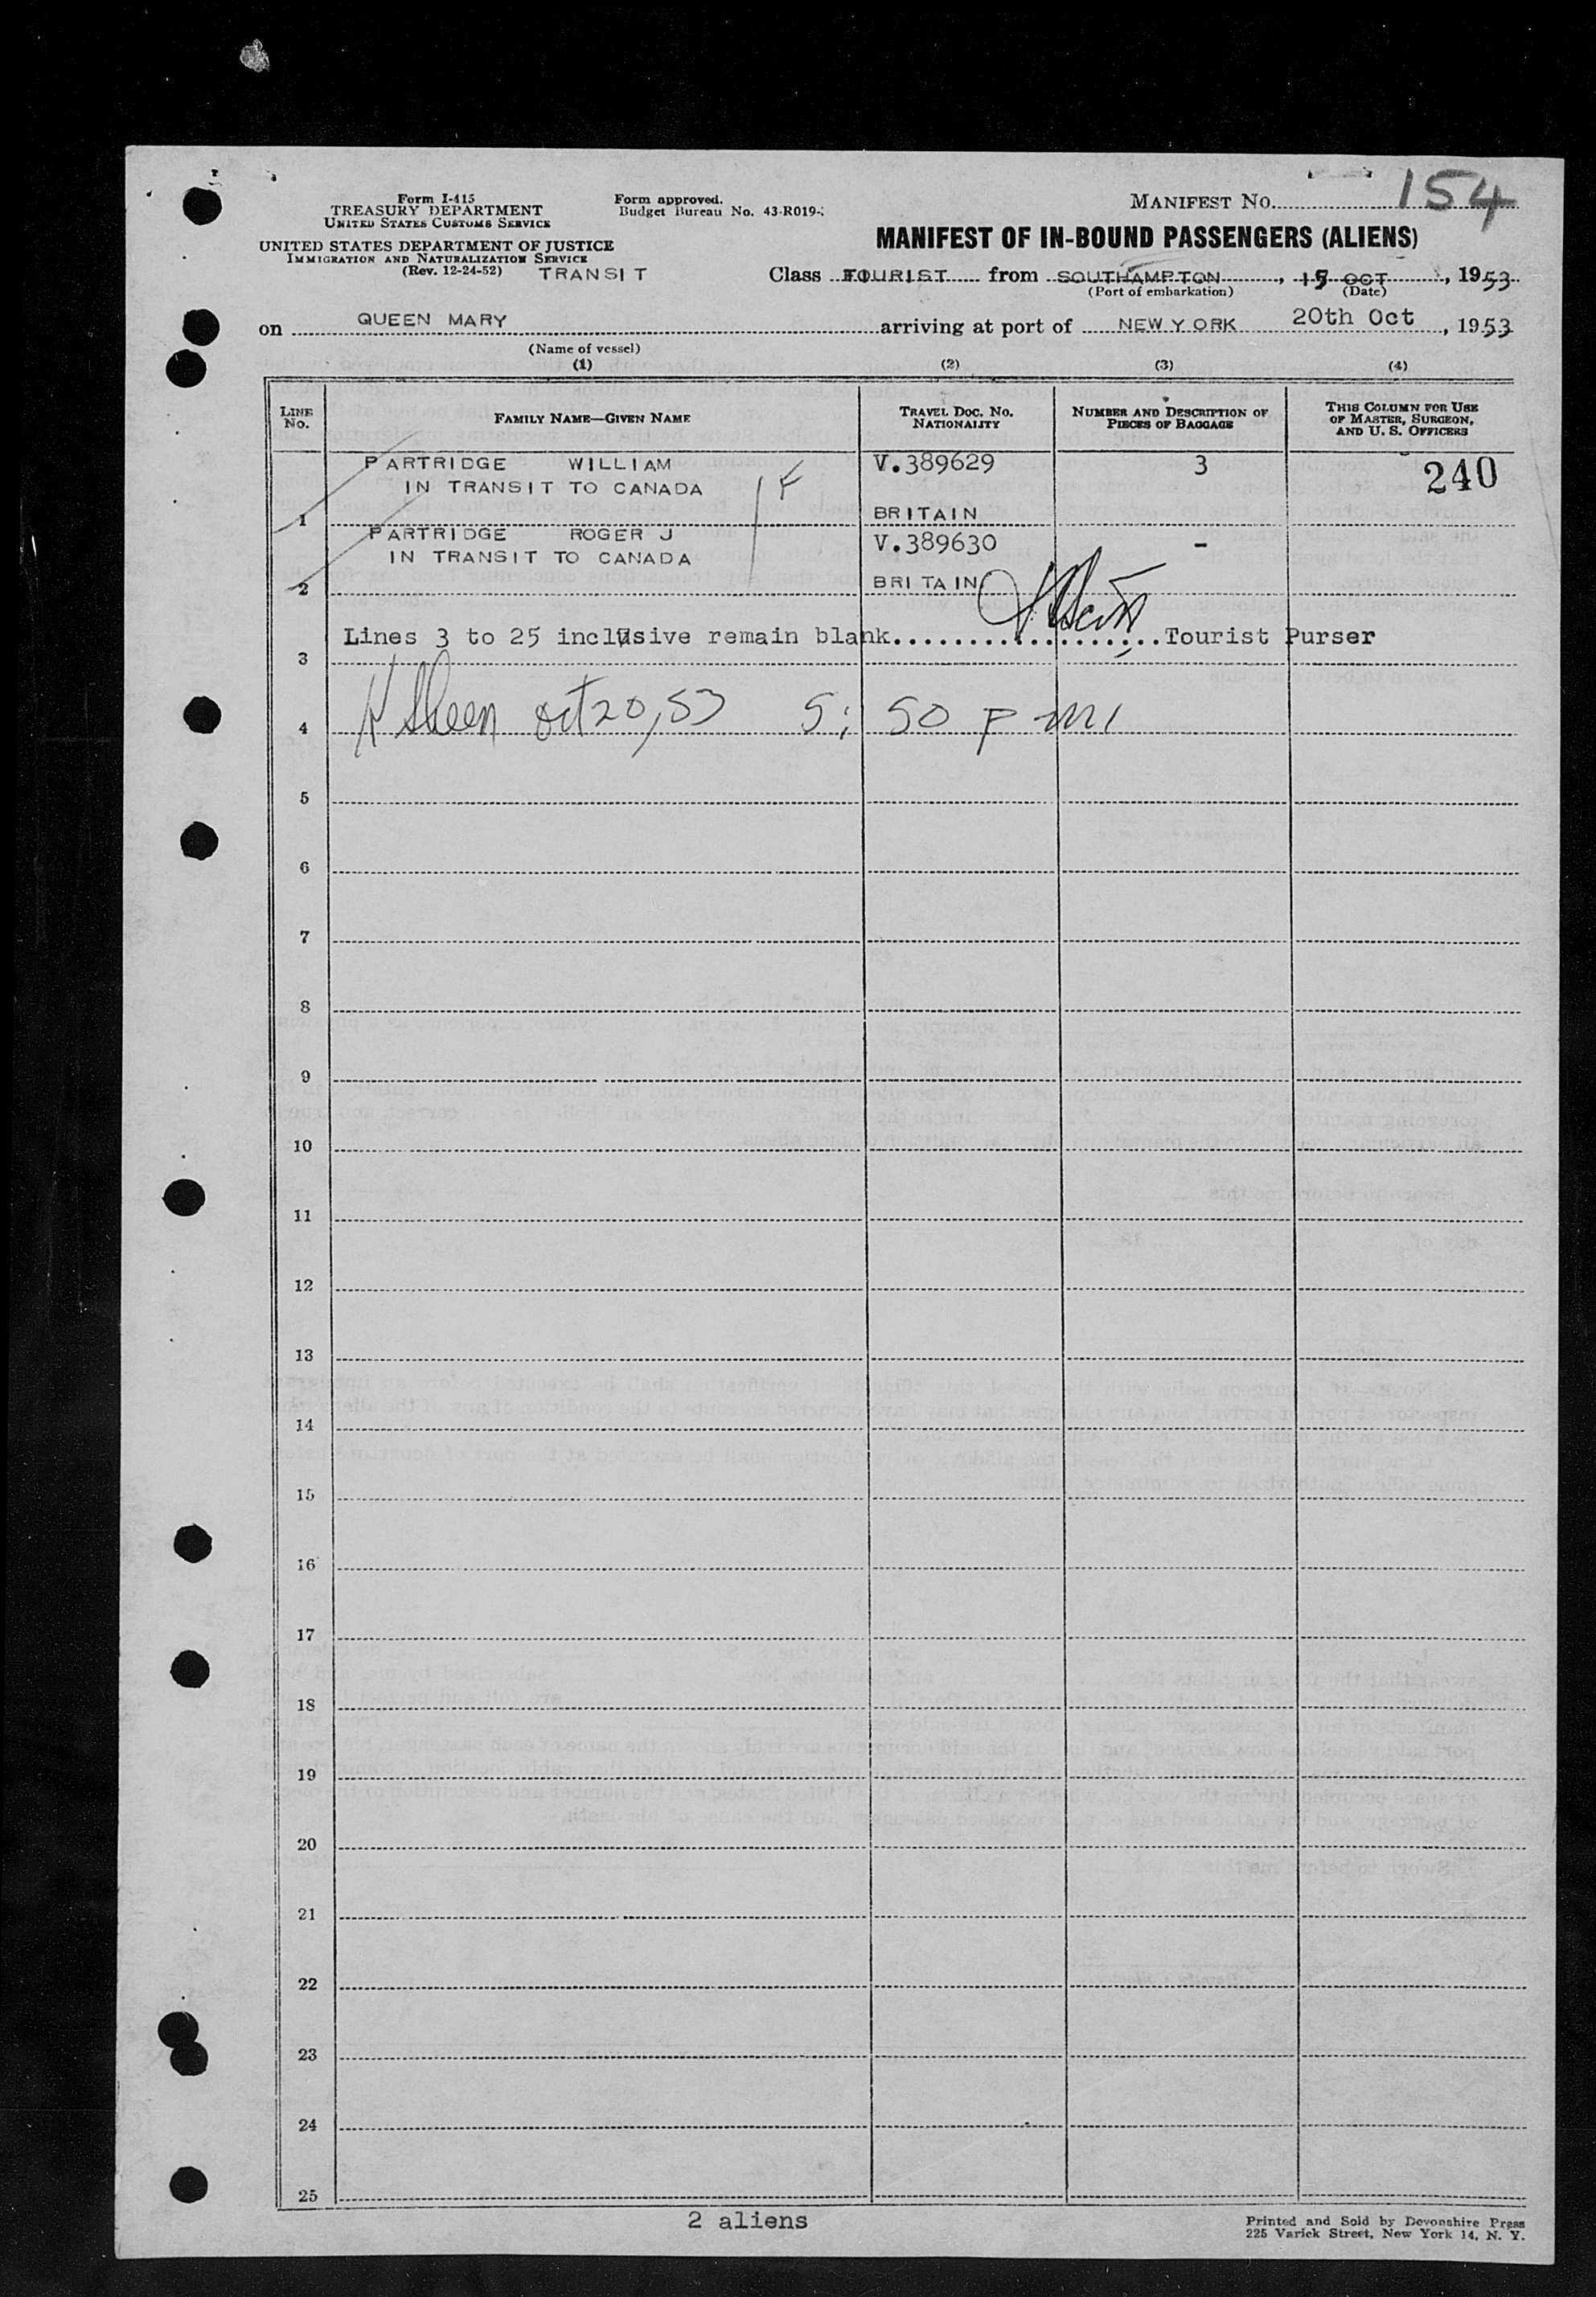 MANIFEST NO. 154
Form I-415
TREASURY DEPARTMENT
UNITED STATES CUSTOMS SERVICE
Form approved.
Budget Bureau No. 43-R019-
UNITED STATES DEPARTMENT OF JUSTICE
IMMIGRATION AND NATURALIZATION SERVICE
(Rev. 12-24-52) TRANSIT
MANIFEST OF IN-BOUND PASSENGERS (ALIENS)
Class TOURIST from SOUTHAMPTON, OCT, 1953
(Port of embarkation) (Date)
on QUEEN MARY arriving at port of NEW YORK 20th Oct, 1953
(Name of vessel)
(1) (2) (3) (4)
LINE No. FAMILY NAME—GIVEN NAME TRAVEL DOC. NO. NATIONALITY NUMBER AND DESCRIPTION OF PIECES OF BAGGAGE THIS COLUMN FOR USE OF MASTER, SURGEON, AND U. S. OFFICERS
PARTRIDGE WILLIAM V.389629 3 240
IN TRANSIT TO CANADA
1 BRITAIN
PARTRIDGE ROGER J V.389630 -
IN TRANSIT TO CANADA
2 BRITAIN
Lines 3 to 25 inclusive remain blank..................Tourist Purser
3
4 oct 20, 53 5:50 pm
5
6
7
8
9
10
11
12
13
14
15
16
17
18
19
20
21
22
23
24
25
2 aliens
Printed and Sold by Devonshire Press
225 Varick Street, New York 14, N. Y.